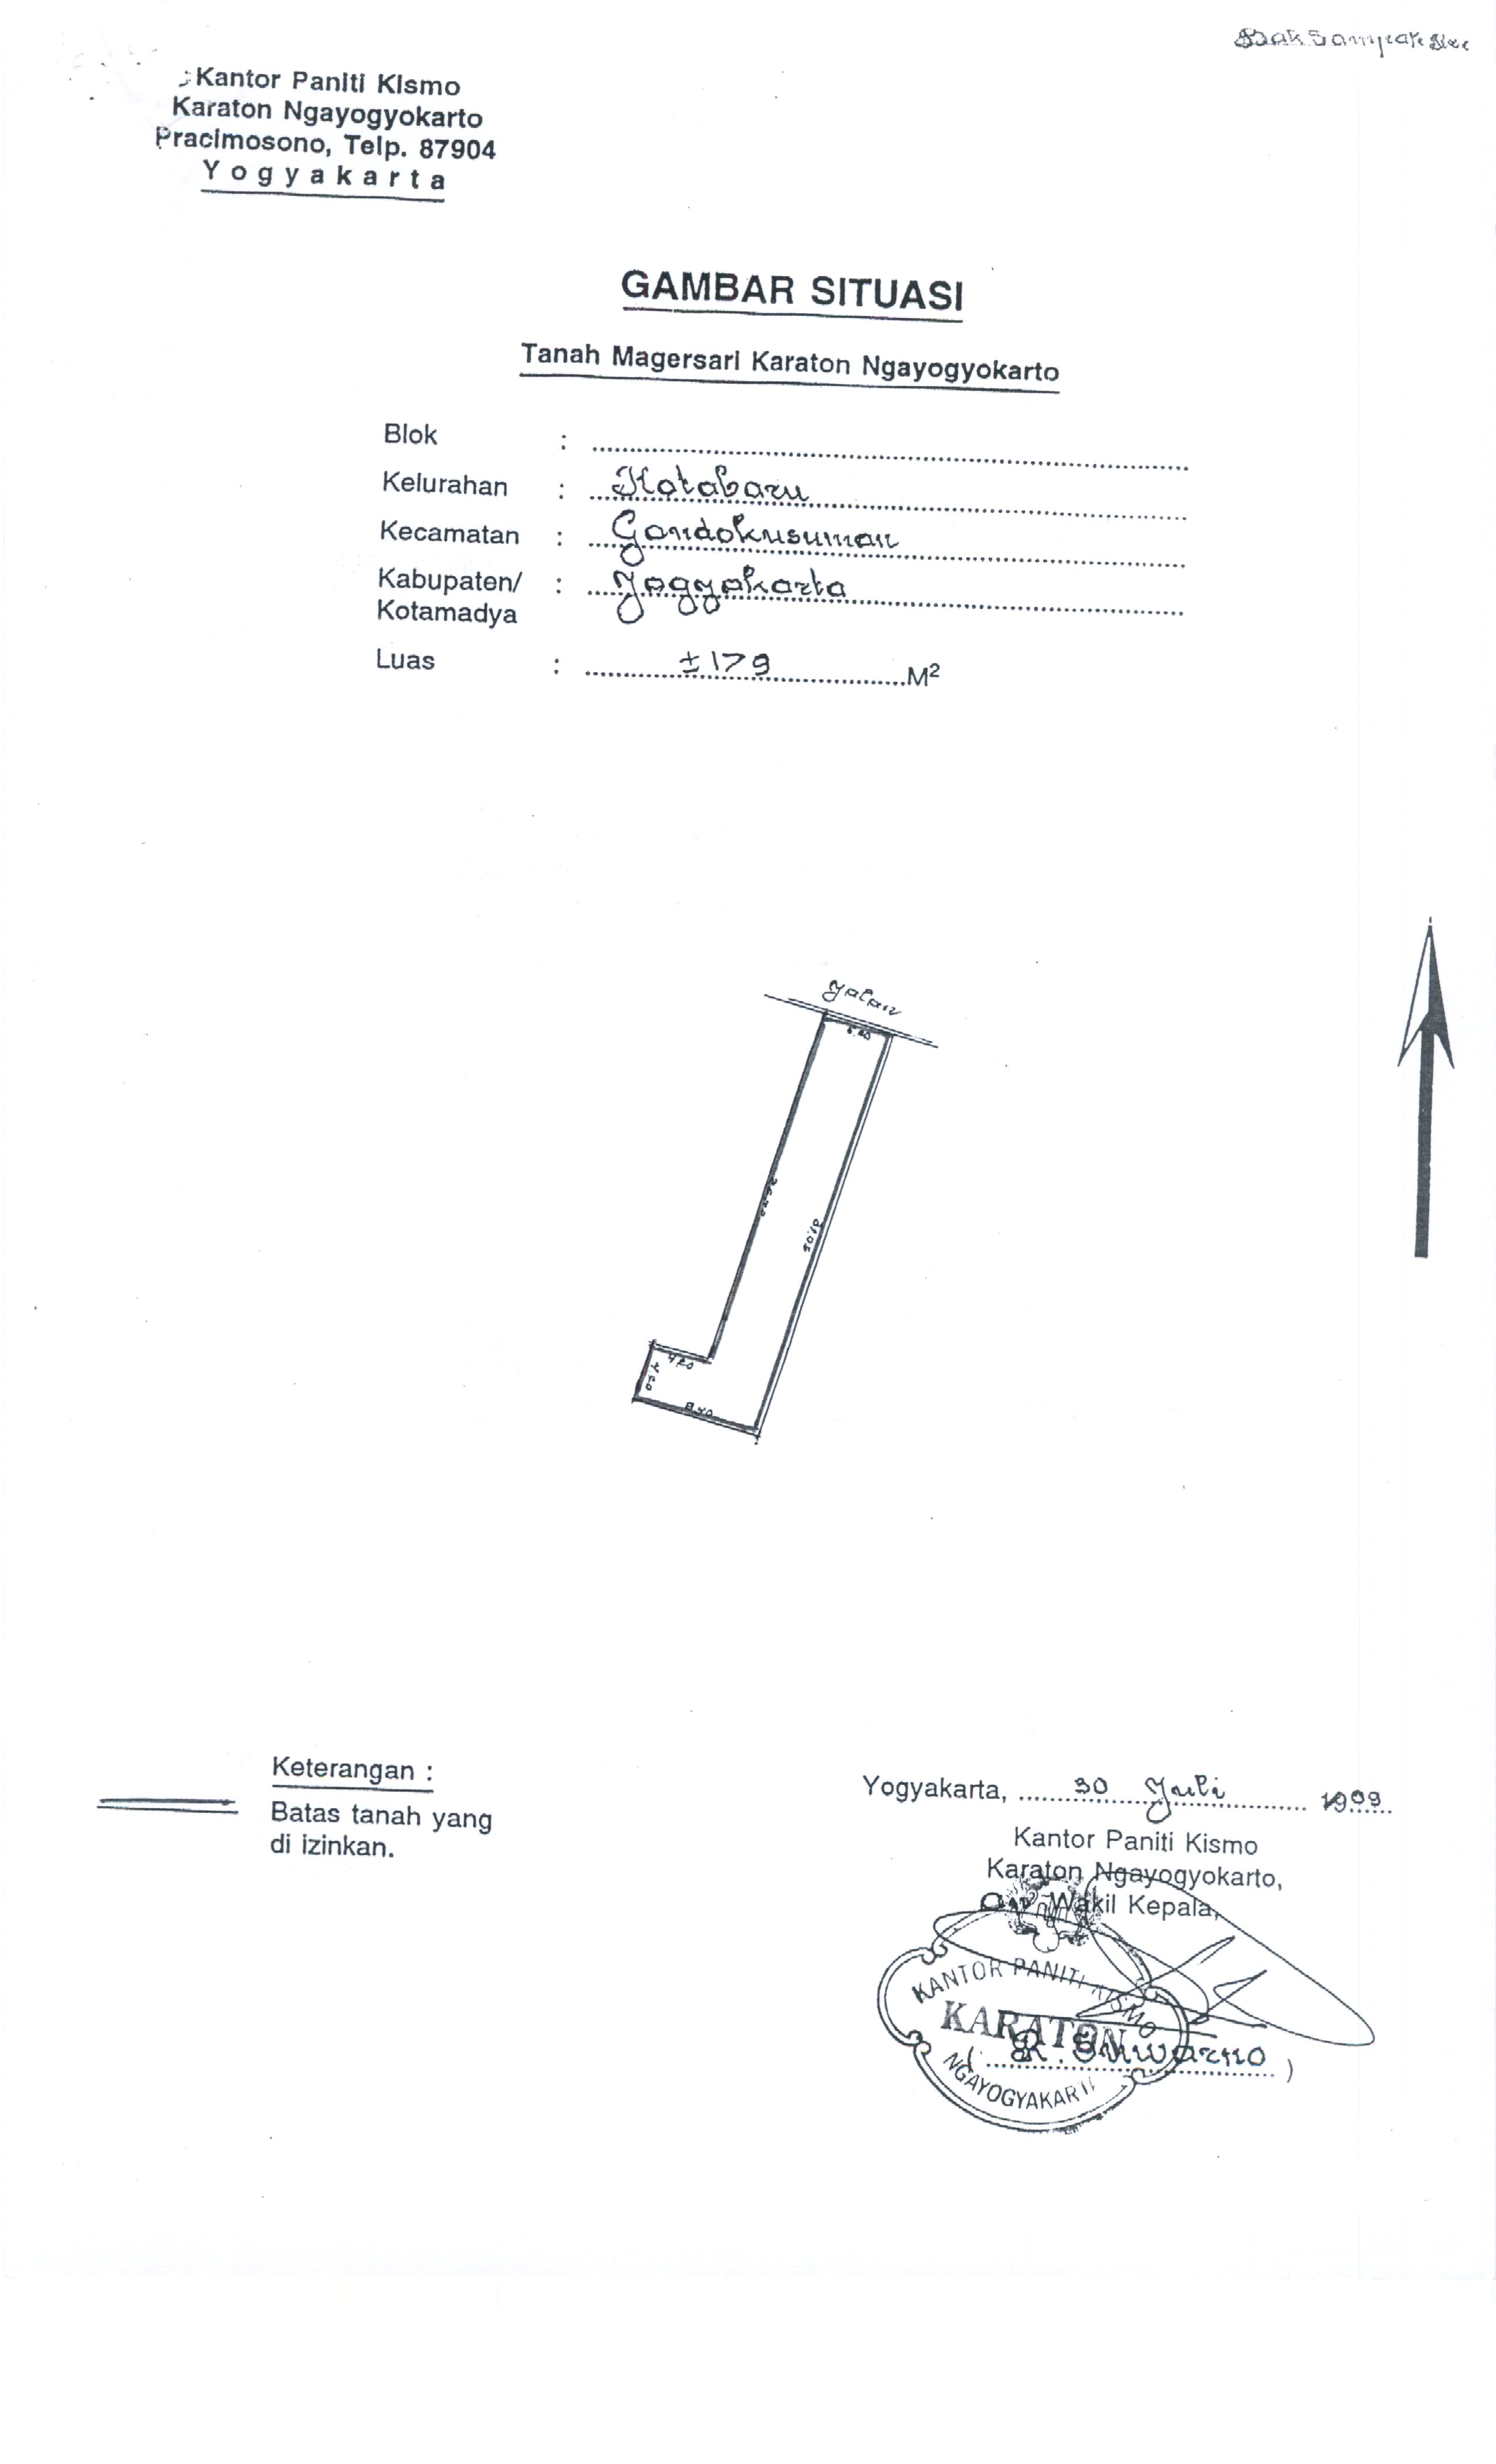 Bak Sampah Dec
Kantor Paniti Kismo
Karaton Ngayogyokarto
Pracimosono, Telp. 87904
Yogyakarta
GAMBAR SITUASI
Tanah Magersari Karaton Ngayogyokarto
Blok :
Kelurahan : Kotabaru
Kecamatan : Gondokusuman
Kabupaten/ : Yogyakarta
Kotamadya
Luas : ±179 M²
Jalan
31,05
4,20
8,40
Keterangan :
Batas tanah yang
di izinkan.
Yogyakarta, 30 Juli 1999
Kantor Paniti Kismo
Karaton Ngayogyokarto,
Wakil Kepala,
KANTOR PANITI KISMO
KARATON
( R. Suwarno )